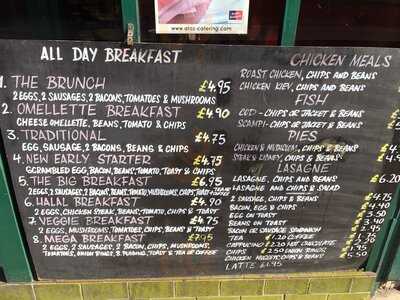 www.atos-catering.com
ALL DAY BREAKFAST
1. THE BRUNCH £4.95
2 EGGS, 2 SAUSAGES, 2 BACONS, TOMATOES & MUSHROOMS
2. OMELLETTE BREAKFAST £4.90
CHEESE OMELLETTE, BEANS, TOMATO & CHIPS
3. TRADITIONAL £4.75
EGG, SAUSAGE, 2 BACONS, BEANS & CHIPS
4. NEW EARLY STARTER £4.75
SCRAMBLED EGG, BACON, BEANS, TOMATO, TOAST & CHIPS
5. THE BIG BREAKFAST £6.95
2 EGGS, 2 SAUSAGES, 2 BACON, BEANS, TOMATO, MUSHROOMS, CHIPS, TOAST & TEA OR
6. HALAL BREAKFAST £4.90
2 EGGS, CHICKEN STEAK, BEANS, TOMATO, CHIPS & TOAST
7. VEGGIE BREAKFAST £4.75
2 EGGS, MUSHROOMS, TOMATOES, CHIPS, BEANS & TOAST
8. MEGA BREAKFAST £7.95
2 EGGS, 2 SAUSAGES, 2 BACON, CHIPS, MUSHROOMS,
TOMATOES, ONION RINGS, B. PUDDING, TOAST & TEA OR COFFEE
CHICKEN MEALS
ROAST CHICKEN, CHIPS AND BEANS
CHICKEN KIEV, CHIPS AND BEANS
FISH
COD - CHIPS OR JACKET & BEANS
SCAMPI - CHIPS OR JACKET & BEANS
PIES
CHICKEN & MUSHROOM, CHIPS & BEANS
STEAK & KIDNEY, CHIPS & BEANS
LASAGNE
LASAGNE, CHIPS AND BEANS £6.20
LASAGNE AND CHIPS & SALAD
2 SAUSAGE, CHIPS & BEANS
BACON, EGG & CHIPS
EGG ON TOAST 3.50
BEANS ON TOAST
BACON OR SAUSAGE SANDWICH
TEA £1.20 COFFEE
CAPPUCCINO £2.30 HOT CHOCOLATE
CHIPS £2.50 ONION RINGS
CHICKEN NUGGETS CHIPS & BEANS 5.50
LATTE £1.95